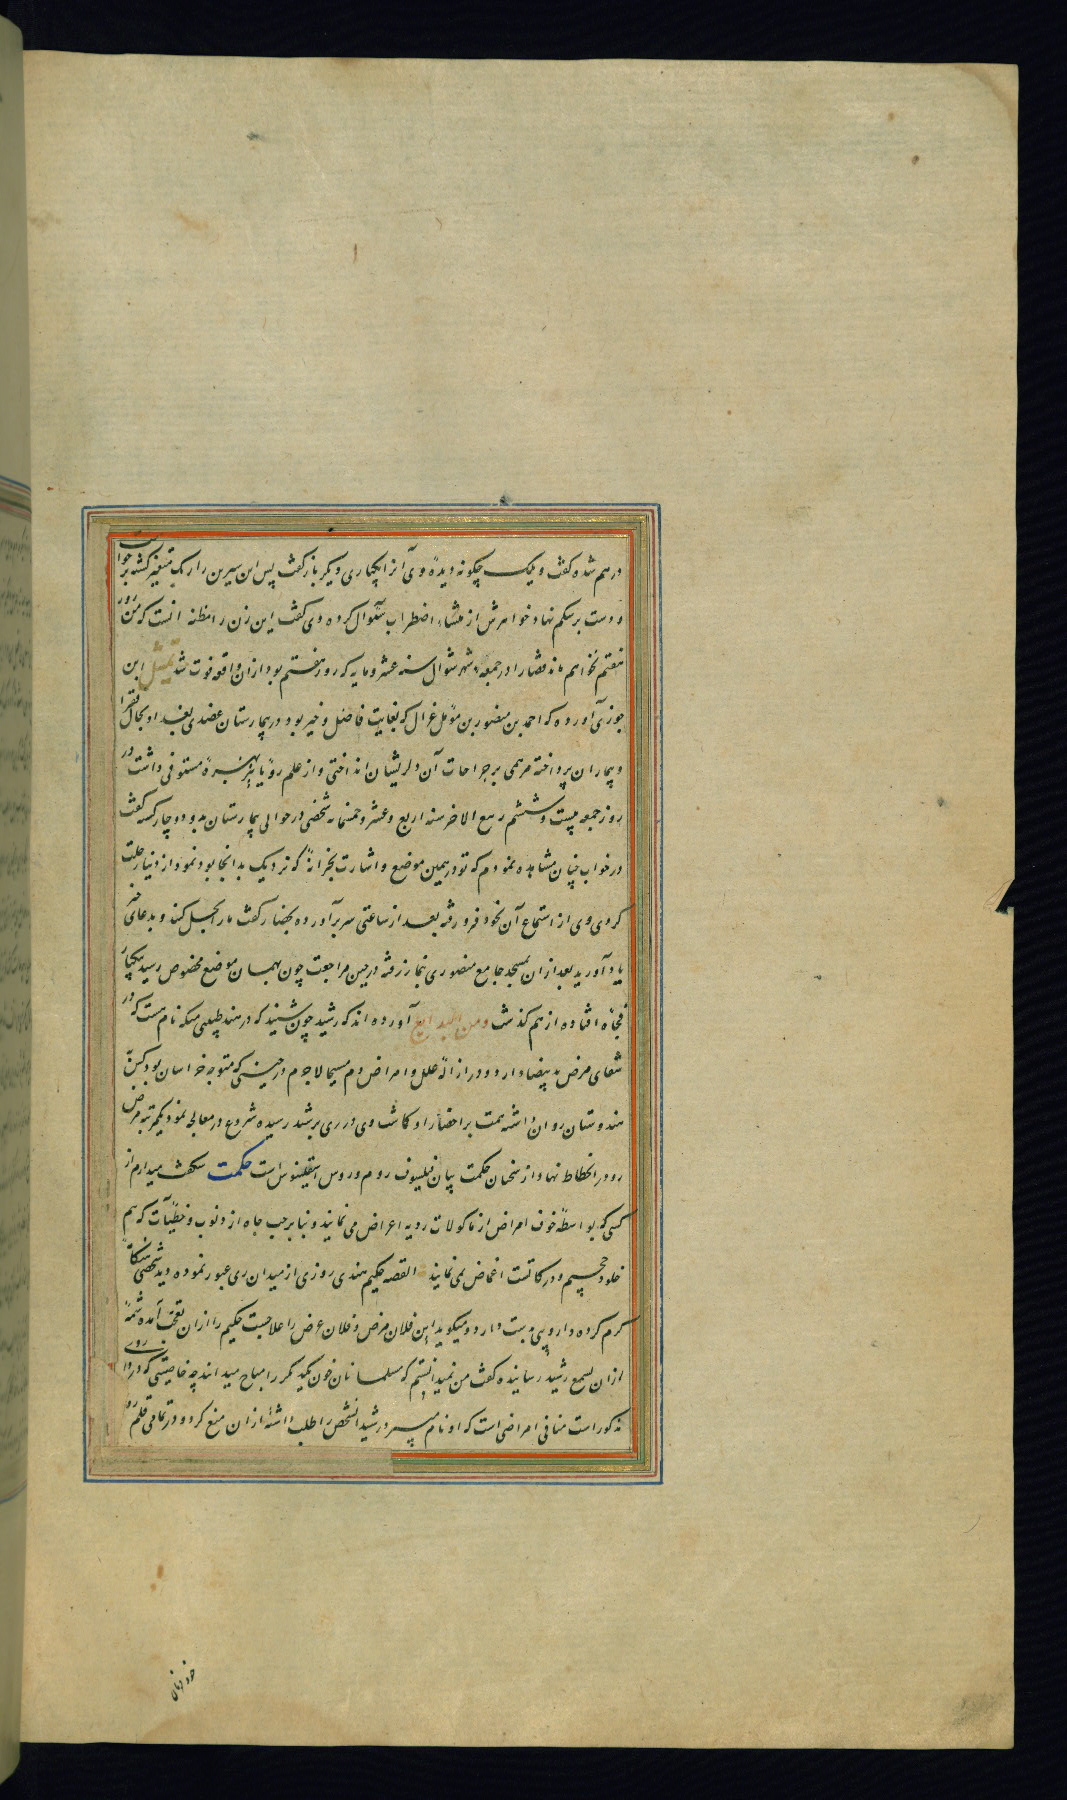 درهم شده گفت ویک چگونه دیدهٔ وی آنرا یکباری دیگر باز گفت پس ابن سیرین را رنک متغیر گشته برخواست
و دست بر شکم نهاد خواهرش از منشاء اضطراب سئوال کرده وی گفت این زن را مظنه آنست که من روز
هفتم نخواهم ماند قضا را در جمعه شهر شوال سنه عشر و مایه که روز هفتم بود ازان واقعه فوت شد تمثیل ابن
جوزی آورده که احمد بن منصور بن مؤمل غزال که بغایت فاضل و خیر بود در بیمارستان عضدی بغداد بحال فقرا
و بیماران پرداخته مرهمی بر جراحات آن دلریشان انداختی و از علم رؤیا نیز بهرهٔ مستوفی داشت در
روز جمعه بیست و ششم ربیع الاخر سنه اربع و عشر و خمسمایه شخصی در حوالی بیمارستان بدو دوچار گشته گفت
در خواب چنان مشاهده نمودم که تو در همین موضع و اشارت بخرابهٔ که نزدیک بدانجا بود نمود از دنیا رحلت
کردی وی از استماع آن بخود فرو رفته بعد از ساعتی سر برآورده بحضار گفت مارا بحل کنید و بدعای خیر
یاد آورید بعد ازان بمسجد جامع منصوری بنماز رفته در حین مراجعت چون بهمان موضع مخصوص رسید بیکبار
فجاه افتاده از هم گذشت ومن البدایع آورده اند که رشید چون شنید که در هند طبیبی منکه نام هست که در
شفای مرض ید بیضا دارد و در ازالهٔ علل و امراض دم مسیحا لاجرم در حینی که متوجه خراسان بود کس
هندوستان روان داشته همت بر احضار او گماشت وی در ری برشید رسیده شروع در معالجه نمود یکمرتبه مرض
رو در انحطاط نهاد و از سخنان حکمت بیان فیلسوف روم و روس اسقلینوس است حکمت شکفت میدارم از
کسی که بواسطهٔ خوف امراض از ماکولات ردیه اعراض می نمایند و بنا بر حب جاه از ذنوب و خطیات که هم
خلود جحیم و درکاتست اغماض نمی نمایند القصه حکیم هندی روزی از میدان ری عبور نموده دید شخصی هنگامهٔ
گرم کرده دارویی بدست دارد و میگوید این فلان مرض و فلان عرض را علاجست حکیم را ازان تعجب آمده شمهٔ
ازان بسمع رشید رسانیده گفت من نمیدانستم که مسلمانان خون یکدیگر را مباح میدانند چه خاصیتی که در داروی
مذکور است منافی امراضی است که او نام میبرد رشید آنشخص را طلب داشته ازان منع کرد و در تمامی قلمرو
خود فرمان